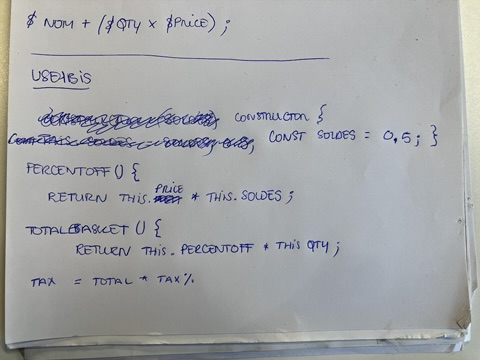 $ NOM + ($QTY x $PRICE);
USE4BIS
CONSTRUCTOR {
CONST SOLDES = 0,5; }
PERCENTOFF () {
RETURN THIS.PRICE * THIS.SOLDES;
TOTALBASKET () {
RETURN THIS.PERCENTOFF * THIS QTY;
TAX = TOTAL * TAX%